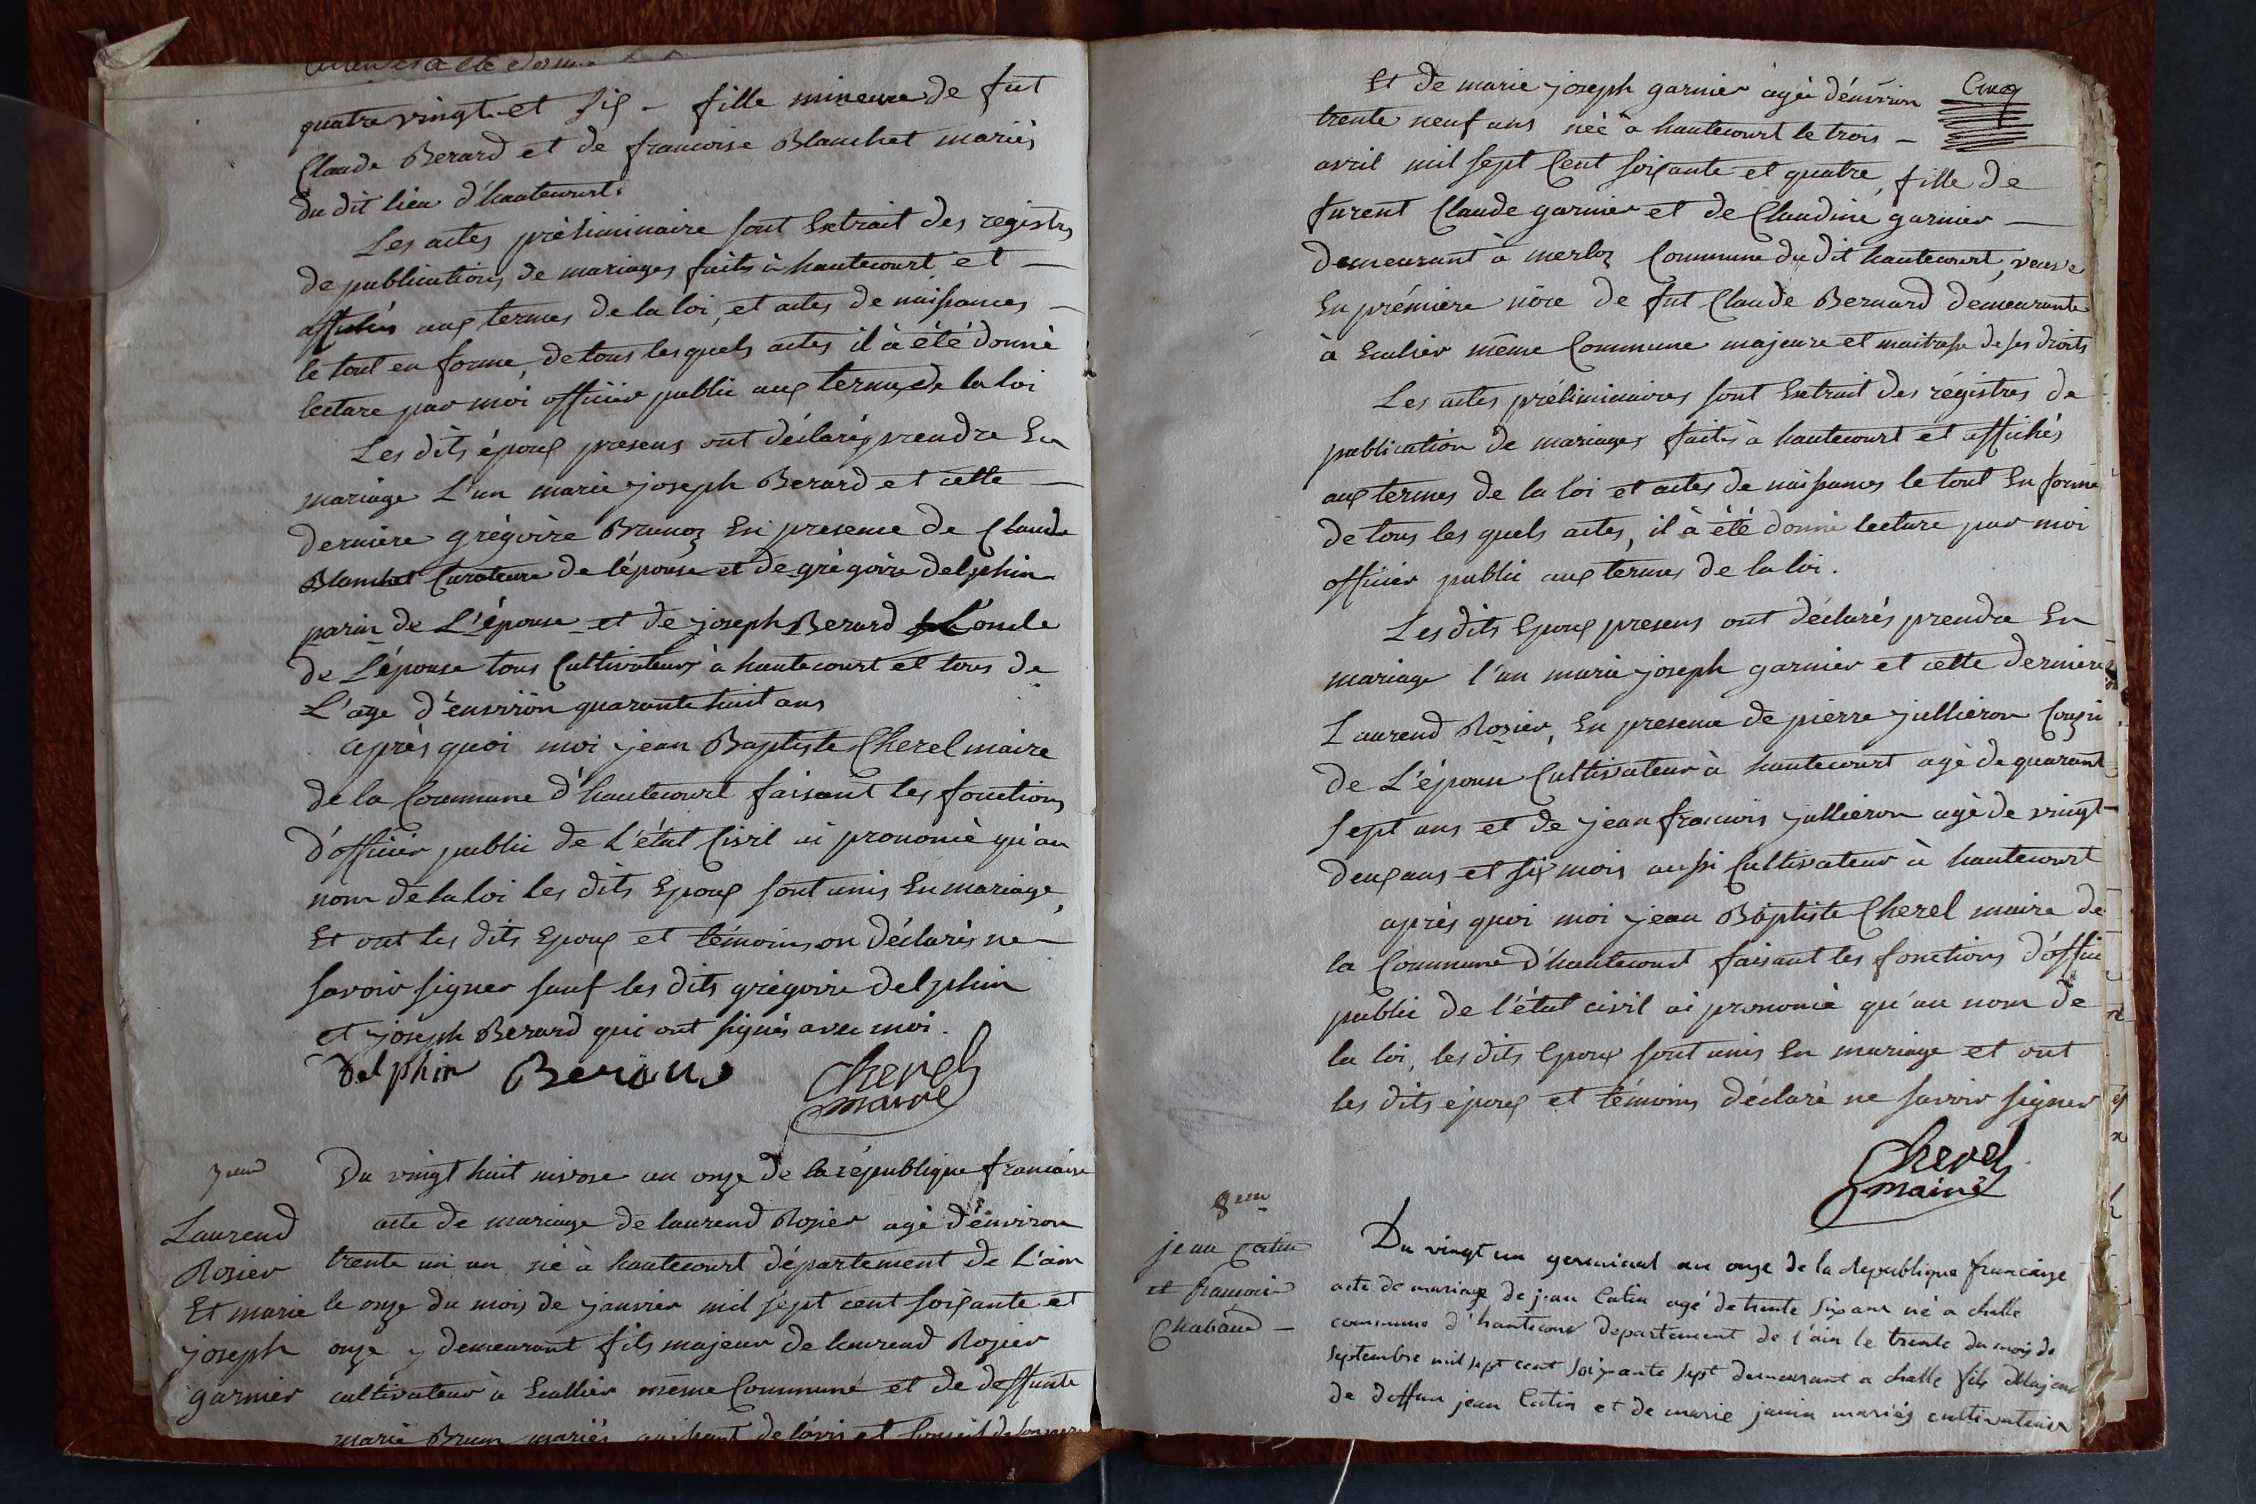 quatre vingt et six - fille mineure de fut
Claude Berard et de francoise Blanchet mariés
du dit lieu d'hautecourt.
Les actes préliminaire sont Extrait des registres
de publications de mariages faits à hautecourt et -
affichés aux termes de la loi, et actes de naissances -
le tout en forme, de tous les quels actes il à été donné
lecture par moi officier public aux termes de la loi
Les dits époux presens ont déclarés prendre En
mariage L'un marie joseph Berard et cette -
dernière grégoire Brunoz En presence de Claude
Blanchet Curateure de l'épouse et de grégoire delphin
parin de L'épouse et de joseph Berard L'oncle
de L'épouse tous Cultivateurs à hautecourt et tous de
L'age d'énviron quarante huit ans
après quoi moi jean Baptiste Cherel maire
de la Commune d'hautecourt faisant les fonctions
d'officier public de L'état Civil ai prononcé qu'au
nom de la loi les dits Epoux sont unis En mariage,
Et ont les dits Epoux et témoins on déclarés ne -
savoir signer sauf les dits grégoire delphin
et joseph Berard qui ont signés avec moi.
Delphin Berard Cherel
maire
7eme
Laurend
Rosier
Et marie
joseph
garnier
Du vingt huit nivose an onze de la république francaise
acte de mariage de laurend Rosier agé d'énviron
trente un an né à hautecourt département de L'ain
le onze du mois de janvier mil sept cent soixante et
onze y demeurant fils majeur de laurend Rosier
cultivateur à Eculier même Commune et de deffunte
marie Brun mariés agissant de l'avis et Conseil de son pere
Cinq
Et de marie joseph garnier agée d'énviron
trente neuf ans née à hautecourt le trois -
avril mil sept Cent soixante et quatre, fille de
furent Claude garnier et de Claudine garnier -
demeurant à merloz Commune du dit hautecourt, veuve
En prémière nôce de fut Claude Bernard demeurante
à Eculier même Commune majeure et maitresse de ses droits
Les actes préliminaires sont Extrait des régistres de
publication de mariages faits à hautecourt et affichés
aux termes de la loi et actes de naissances le tout En forme
de tous les quels actes, il à été donné lecture par moi
officier public aux termes de la loi.
Les dits Epoux presens ont déclarés prendre En
mariage l'un marie joseph garnier et cette derniere
Laurend Rosier, En presence de pierre jullieron Cousin
de L'épouse Cultivateur à hautecourt agé de quarante
sept ans et de jean francois jullieron agé de vingt
deux ans et six mois aussi Cultivateur à hautecourt
après quoi moi jean Baptiste Cherel maire de
la Commune d'hautecourt faisant les fonctions d'officier
public de l'état civil ai prononcé qu'au nom de
la loi, les dits Epoux sont unis En mariage et ont
les dits époux et témoins déclaré ne savoir signer
Cherel
maire
8eme
jean Catin
et francoise
Chaband -
Du vingt un germinal an onze de la Republique francaise
acte de mariage de jean Catin agé de trente six ans né a challe
commune d'hautecour departement de l'ain le trente du mois de
septembre mil sept cent soixante sept demeurant a challe fils Majeur
de deffun jean Catin et de marie janin mariés cultivateur